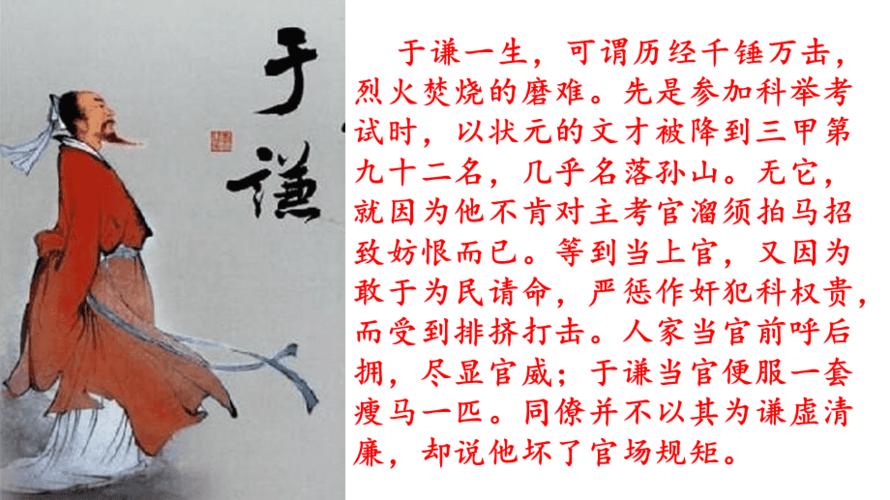 于谦
于谦一生，可谓历经千锤万击，
烈火焚烧的磨难。先是参加科举考
试时，以状元的文才被降到三甲第
九十二名，几乎名落孙山。无它，
就因为他不肯对主考官溜须拍马招
致妨恨而已。等到当上官，又因为
敢于为民请命，严惩作奸犯科权贵，
而受到排挤打击。人家当官前呼后
拥，尽显官威；于谦当官便服一套
瘦马一匹。同僚并不以其为谦虚清
廉，却说他坏了官场规矩。